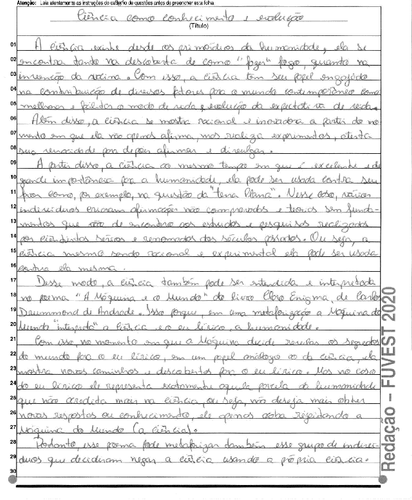 Atenção: Leia atentamente as instruções do caderno de questões antes de preencher esta folha
Ciência como conhecimento e evolução
(Título)
01 A ciência existe desde os primórdios da humanidade, ela se
02 encontra tanto na descoberta de como "fazer" fogo, quanto na
03 invenção da vacina. Com isso, a ciência tem seu papel engajado
04 na contribuição de diversos fatores para o mundo contemporâneo como
05 melhorar e facilitar o modo de vida, evolução da expectativa de vida.
06 Além disso, a ciência se mostra racional e inovadora a partir do mo-
07 mento em que ela não apenas afirma, mas realiza experimentos, atesta
08 sua veracidade por depois afirmar e divulgar.
09 A partir disso, a ciência ao mesmo tempo em que é excelente e de
10 grande importância para a humanidade, ela pode ser usada contra seu
11 como, por exemplo, na questão da "terra Plana". Nesse caso, vários
12 indivíduos criaram afirmações não comprovadas e teorias sem funda-
13 mentos que vão de encontro aos estudos e pesquisas realizados
14 por cientistas sérios e renomados dos séculos passados. Ou seja, a
15 ciência mesmo sendo racional e experimental ela pode ser usada
16 contra ela mesma.
17 Desse modo, a ciência também pode ser entendida e interpretada
18 no poema "A Máquina e o Mundo" do livro Claro Enigma, de Carlos
19 Drummond de Andrade. Isso porque, em uma metaforização a Máquina do
20 Mundo "interpreta" a ciência e o eu lírico, a humanidade.
21 Com isso, no momento em que a Máquina decide revelar os segredos
22 do mundo para o eu lírico, em um papel análogo ao da ciência, ela
23 mostra novos caminhos e descobertas para o eu lírico. Mas no caso
24 do eu lírico ele representa exatamente aquela parcela da humanidade
25 que não acredita mais na ciência, ou seja, não deseja mais obter
26 novas respostas ou conhecimento, ele apenas acaba rejeitando a
27 Máquina do Mundo (a ciência).
28 Portanto, esse poema pode metaforizar também esse grupo de indiví-
29 duos que decidiram negar a ciência usando a própria ciência.
30
Redação – FUVEST 2020